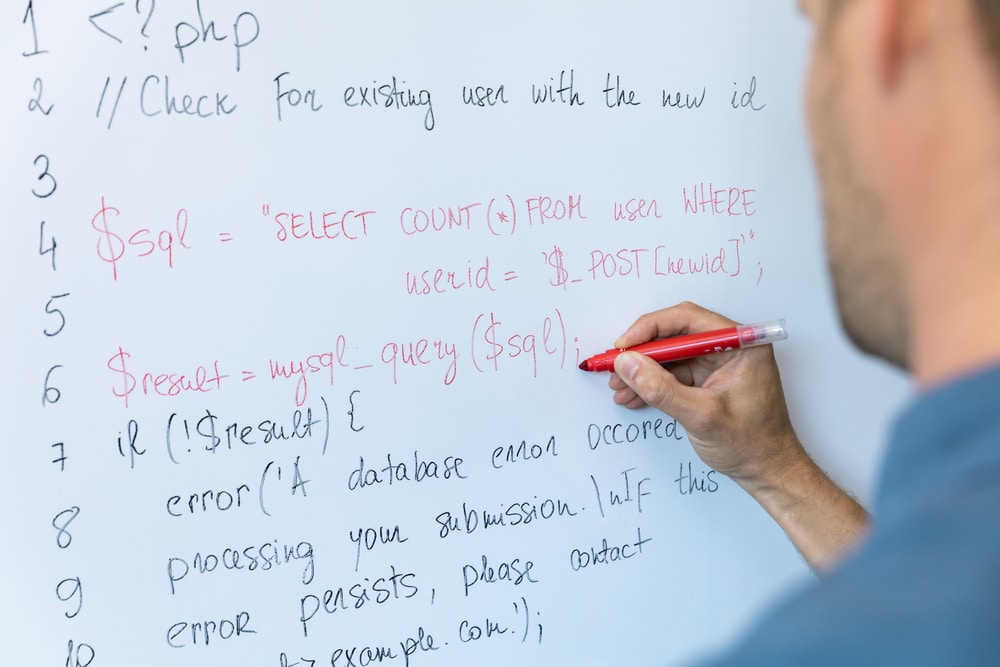 1 <?php
2 // Check For existing user with the new id
3
4 $sql = "SELECT COUNT(*) FROM user WHERE
userid = '$_POST[newid]'";
5
6 $result = mysql_query($sql);
7 if (!$result) {
error('A database error occored
8 processing your submission.\nIF this
9 error persists, please contact
10 example.com.');